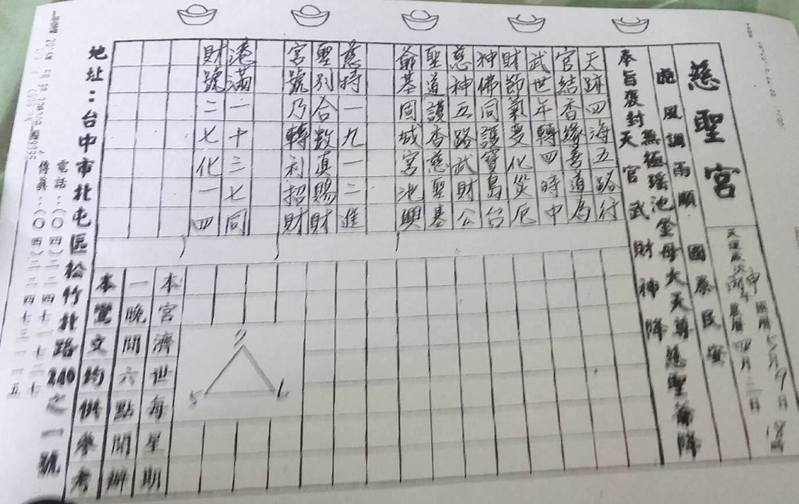 慈聖宮
風調雨順 國泰民安
無極瑤池金母大天尊慈聖
奉旨褒封天官武財神降
天跡四海五路行
官結香緣善道為
武世年轉四時中
財節氣變化從厄
神佛同護寶島台
慈神五路武財公
聖道護香慈聖基
爺基同城宮池興
慈持一九一二進
聖別合數真賜財
宮號乃轉利招財
滿一十三七同
財號二七化一四
本宮濟世每星期
一晚間六點開辦
本鸞文均供參考
地址：台中市北屯區松竹北路240之一號
電話：(〇四)二二四七
傳真：(〇四)二二四七三一一五